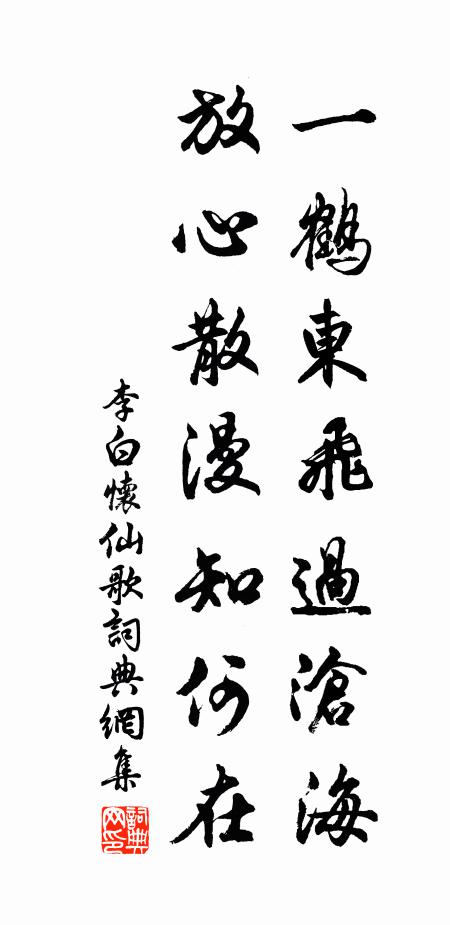 一鶴東飛過滄海
放心散漫知何在
李白懷仙歌詞典網集
詞典
网印